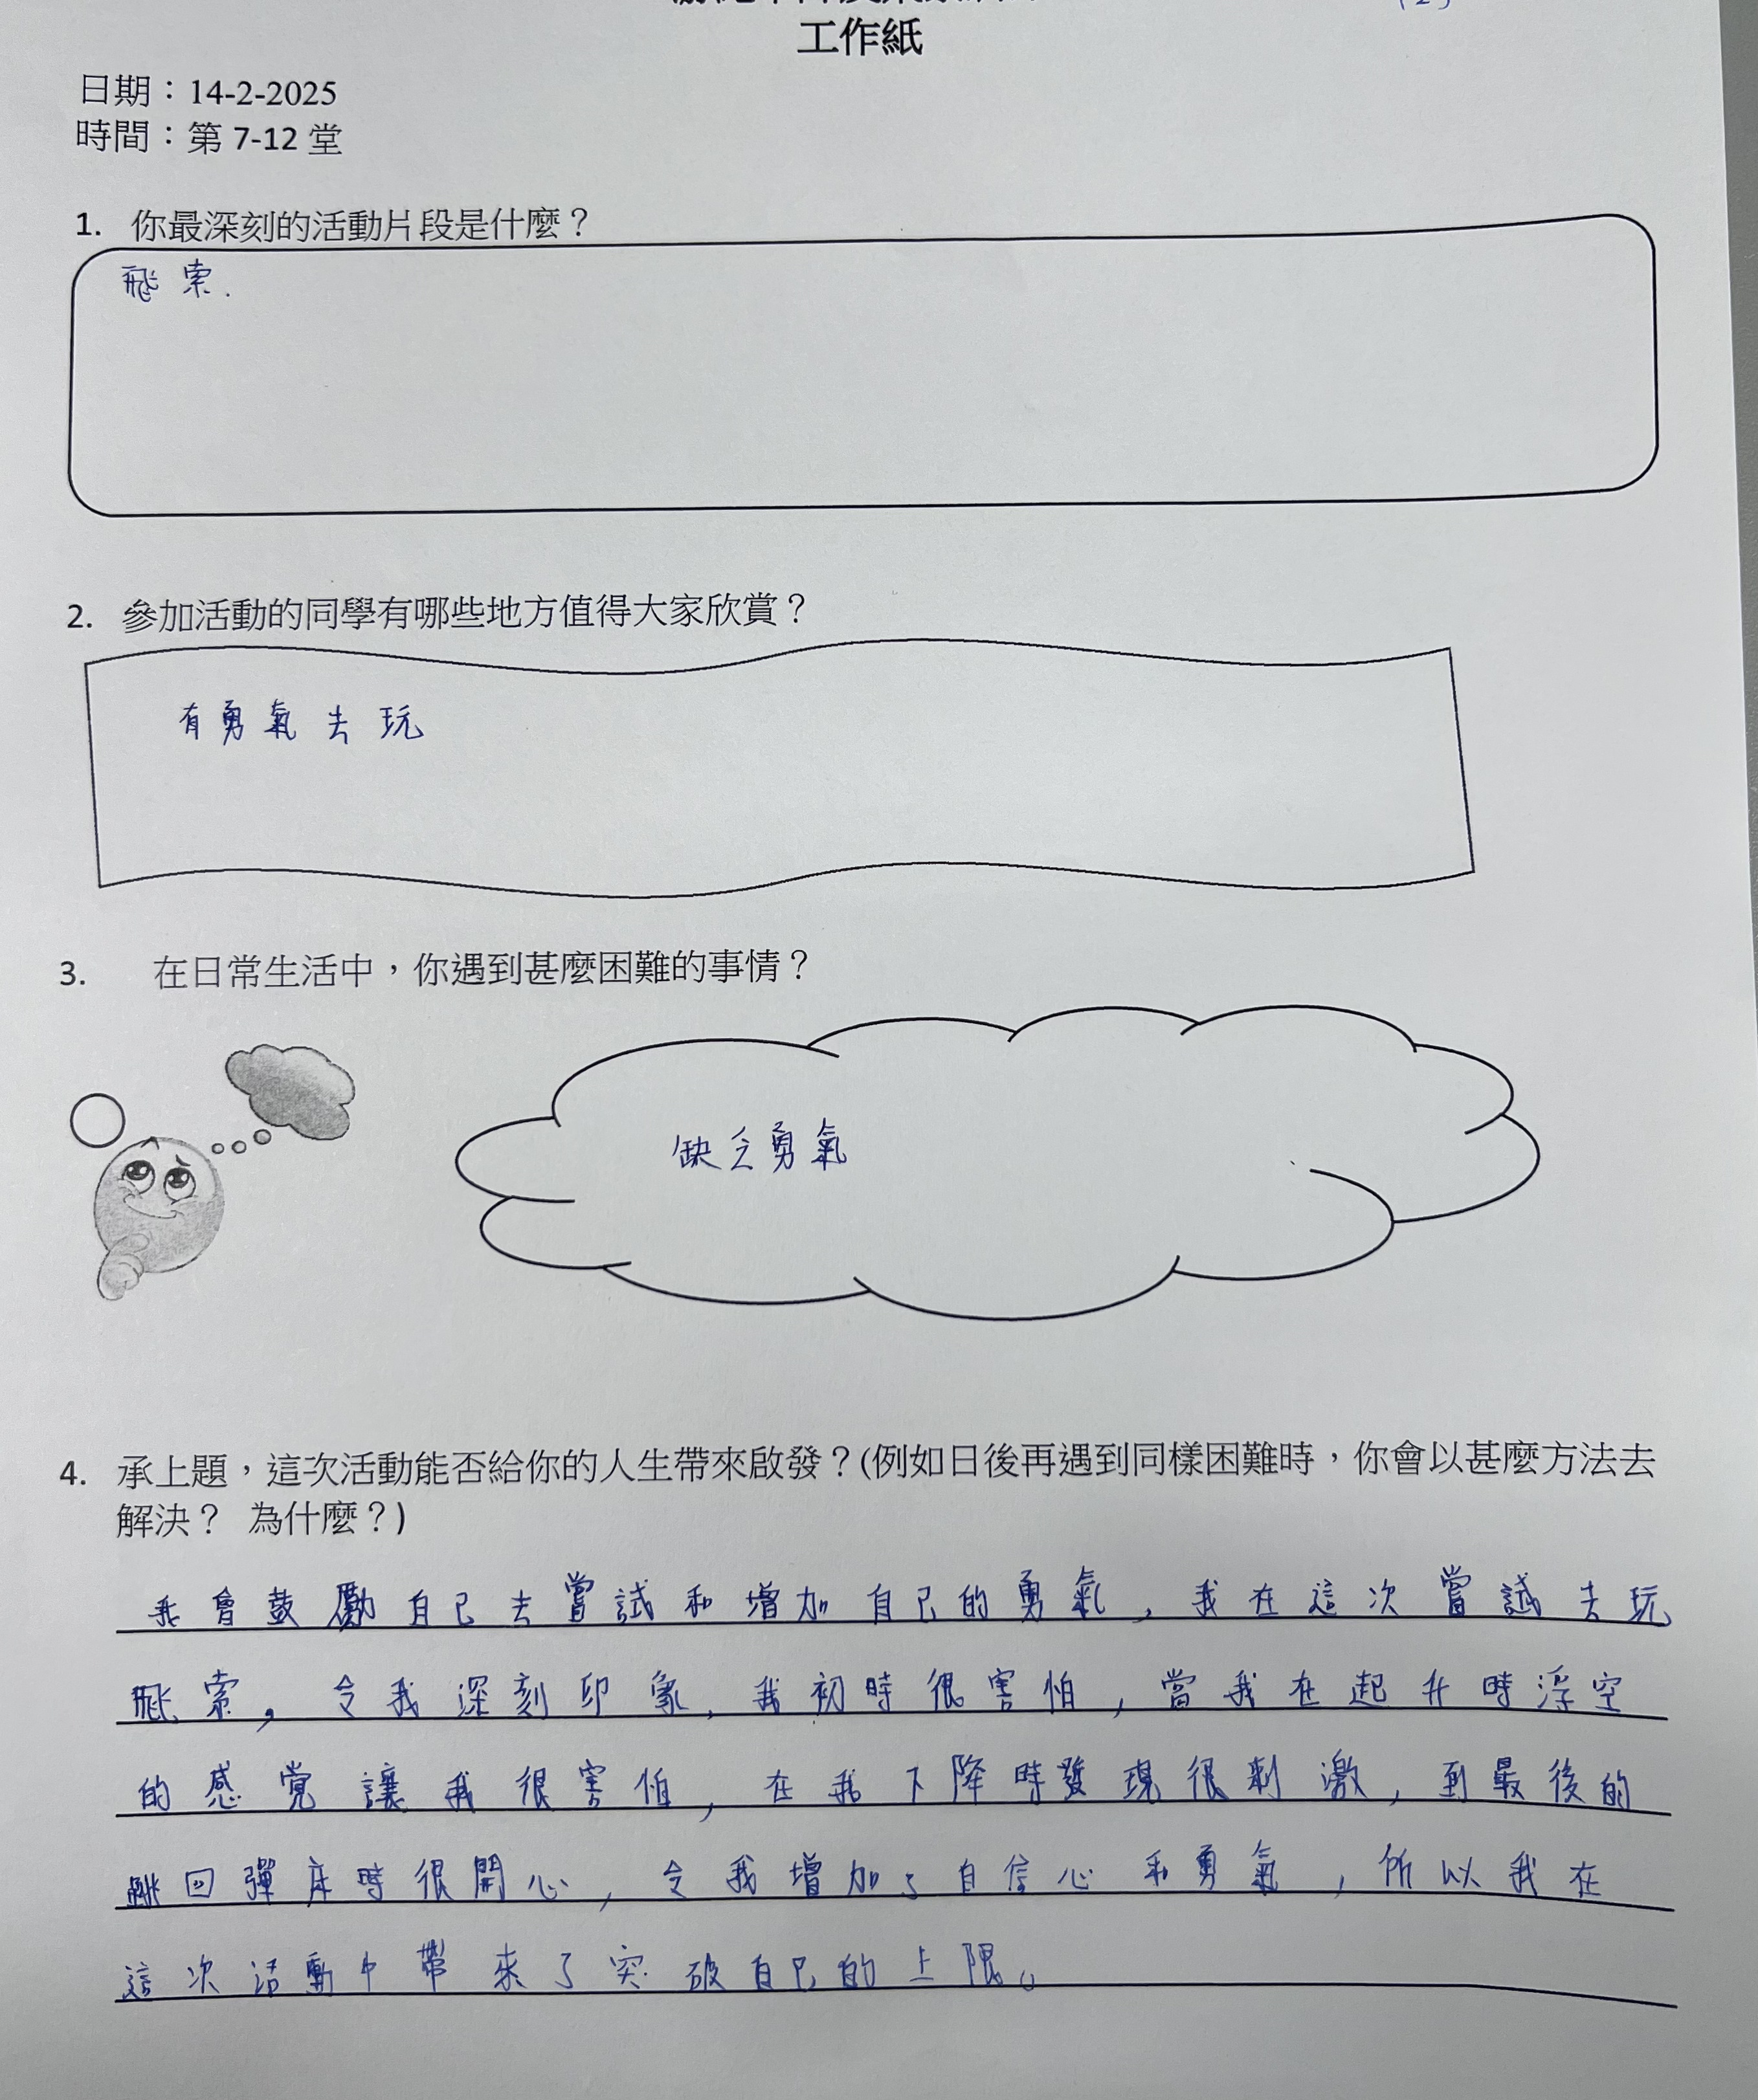 工作紙
日期：14-2-2025
時間：第 7-12 堂
1. 你最深刻的活動片段是什麼？
飛索.
2. 參加活動的同學有哪些地方值得大家欣賞？
有勇氣去玩
3. 在日常生活中，你遇到甚麼困難的事情？
缺乏勇氣
4. 承上題，這次活動能否給你的人生帶來啟發？(例如日後再遇到同樣困難時，你會以甚麼方法去
解決？ 為什麼？)
我會鼓勵自己去嘗試和增加自己的勇氣，我在這次嘗試去玩
飛索，令我深刻印象，我初時很害怕，當我在起升時浮空
的感覺讓我很害怕，在我下降時發現很刺激，到最後的
跳回彈床時很開心，令我增加了自信心和勇氣，所以我在
這次活動中帶來了突破自己的上限。